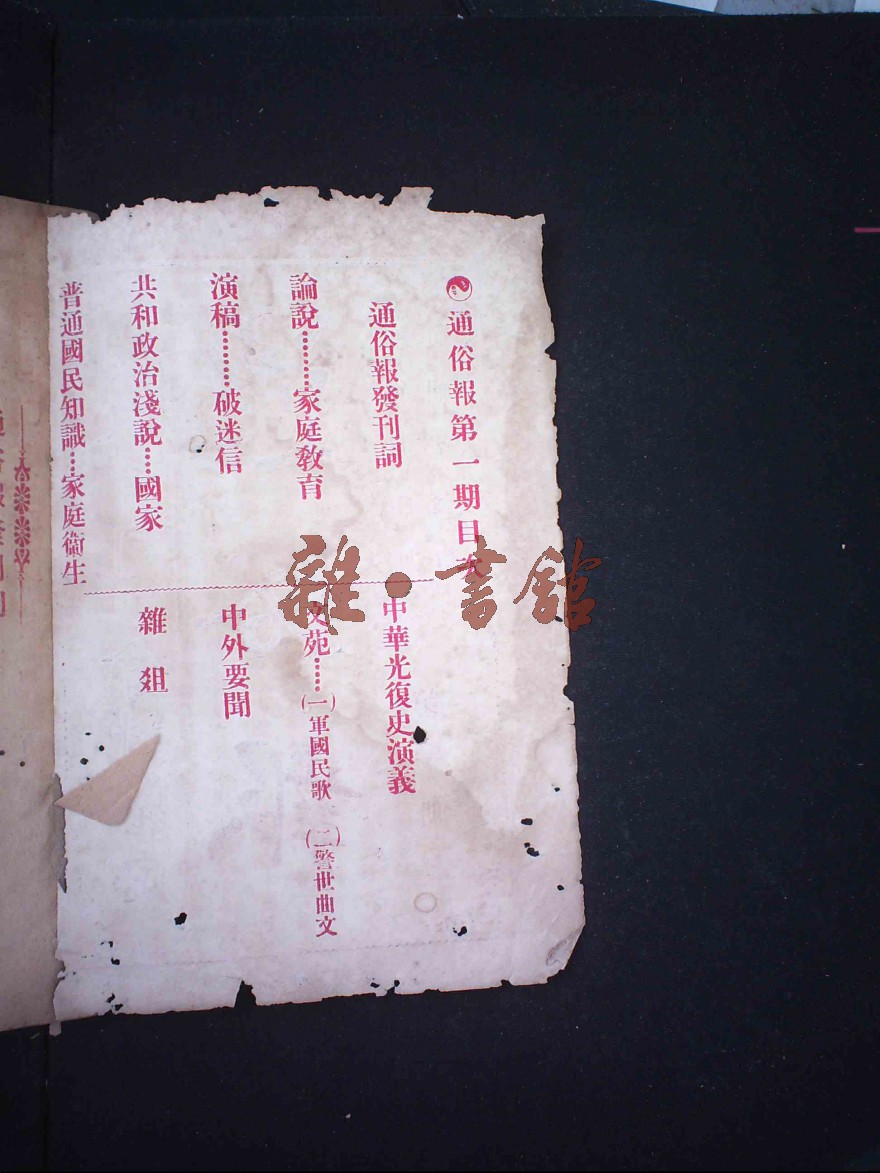 通俗報第一期目次
通俗報發刊詞
論說………家庭教育
演稿………破迷信
共和政治淺說……國家
普通國民知識…家庭衞生
中華光復史演義
文苑……(一)軍國民歌 (二)警世曲文
中外要聞
雜俎
雜·書館